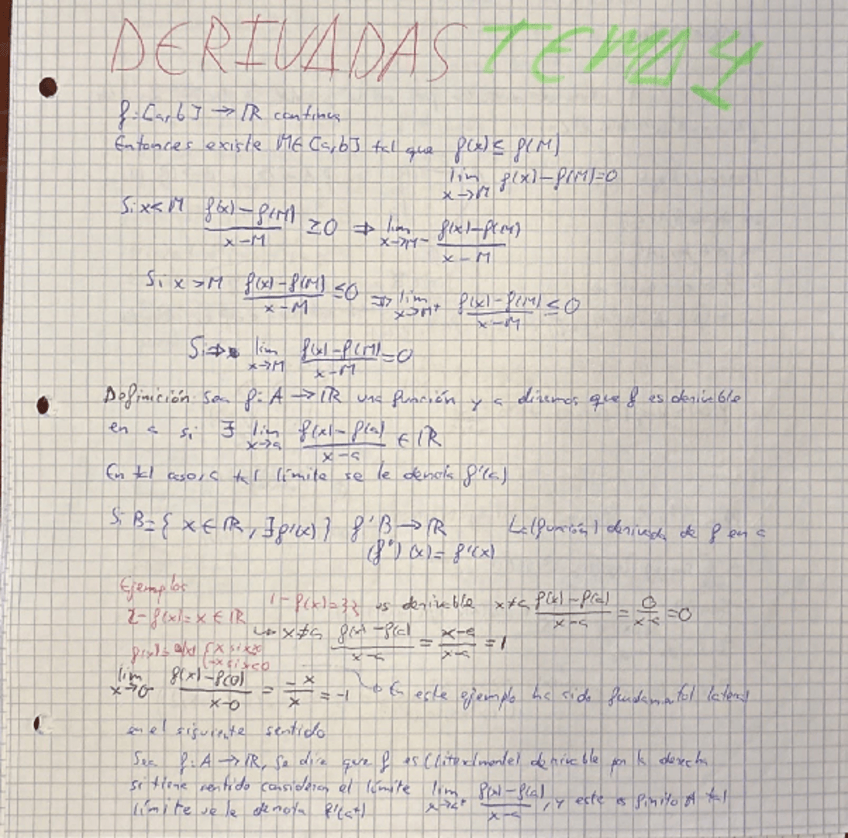 DERIVADAS TEMA 1
f: [a,b] → ℝ continua
Entonces existe M∈[a,b] tal que f(x) ≤ f(M)
lim x→M f(x)-f(M)=0
Si x<M (f(x)-f(M))/(x-M) ≥0 ⇒ lim x→M⁻ (f(x)-f(M))/(x-M)
Si x>M (f(x)-f(M))/(x-M) ≤0 ⇒ lim x→M⁺ (f(x)-f(M))/(x-M) ≤0
Si ⇒ lim x→M (f(x)-f(M))/(x-M) =0
Definición: Sea f: A → ℝ una función y a diremos que f es derivable
en a si ∃ lim x→a (f(x)-f(a))/(x-a) ∈ ℝ
En tal caso, a tal límite se le denota f'(a)
Si B={ x∈ℝ, ∃f'(x) } f' B→ℝ La (función) derivada de f en a
(f') (x)= f'(x)
Ejemplos
1-f(x)=3 es derivable x≠a (f(x)-f(a))/(x-a) = 0/(x-a) =0
2-f(x)=x ∈ ℝ
x≠a (f(x)-f(a))/(x-a) = (x-a)/(x-a) =1
{x si x≥0
{-x si x<0
lim x→0⁻ (f(x)-f(0))/(x-0) = -x/x =-1
En este ejemplo ha sido fundamental lateral
en el siguiente sentido
Sea f: A → ℝ, se dice que f es (literalmente) derivable por la derecha
si tiene sentido considerar el límite lim x→a⁺ (f(x)-f(a))/(x-a), y este es finito A tal
límite se le denota f'(a⁺)